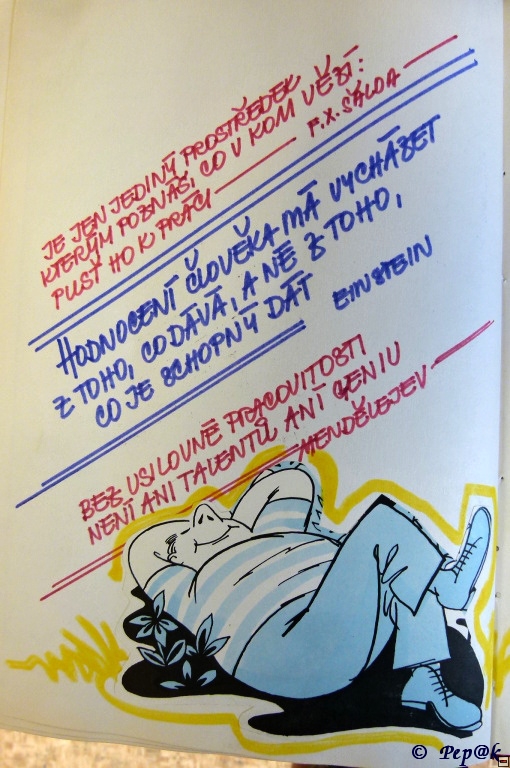 JE JEN JEDINÝ PROSTŘEDEK
KTERÝM POZNÁŠ, CO V KOM VĚZÍ:
PUSŤ HO K PRÁCI
F.X. ŠALDA
HODNOCENÍ ČLOVĚKA MÁ VYCHÁZET
Z TOHO, CO DÁVÁ, A NE Z TOHO,
CO JE SCHOPNÝ DÁT
EINSTEIN
BEZ USILOVNÉ PRACOVITOSTI
NENÍ ANI TALENTŮ ANI GENIU
MENDĚLEJEV
© Pep@k